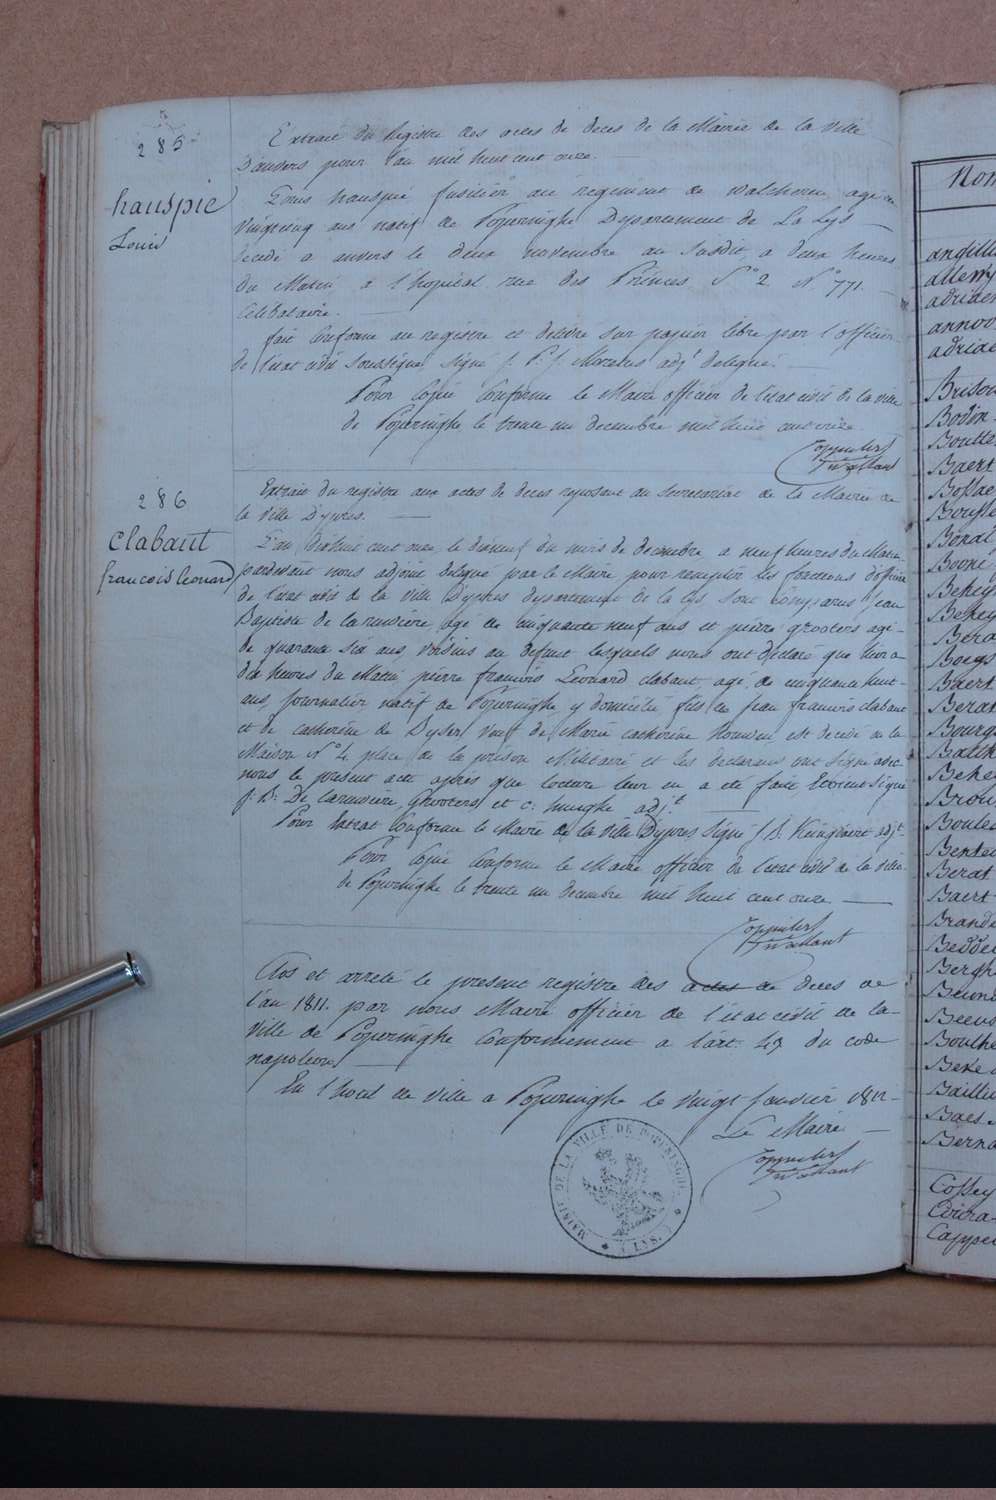 285
hauspie
Louis
Extrait du Registre des actes de deces de la Mairie de la Ville
D'anvers pour l'an mil huit cent onze.
Louis hauspié fusilier au regiment de walcheren agé de
Vingtcinq ans natif de Poperinghe Departement de La Lys
decedé a anvers le deux novembre an susdit, a deux heures
du Matin a l'hopital rue des Princes S.° 2 N.° 771
Celibataire.
fait Conforme au registre et delivré sur papier libre par l'officier
de l'etat civil soussigné signé j. P. j. Mertens adj.t delegué.
Pour Copie Conforme le Maire officier de l'etat civil de la ville
de Poperinghe le trente un decembre mil huit cent onze.
286
Clabaut
francois Leonard
Extrait du registre aux actes de deces reposant au Secretariat de la Mairie de
la Ville D'ypres.
L'an dixhuit cent onze, le dixneuf du mois de decembre a neuf heures du Matin
pardevant nous adjoint delegué par le Maire pour remplir les fonctions d'officier
de l'etat civil de la Ville D'ypres departement de la Lys sont comparus Jean
Baptiste de Larmoiere, agé de cinquante neuf ans et pierre grooters agé
de quarante six ans, voisins du defunt lesquels nous ont declaré que hier a
dix heures du Matin pierre francois Leonard clabaut agé de cinquante huit
ans, journalier natif de Poperinghe, y domicilié fils de jean francois clabaut
et de catherine de Dyser veuf de Marie catherine est decedé en la
Maison N.° 4 place de la prison Militaire et les declarans ont signé avec
nous le present acte après que lecture leur en a été faite Etoient signé
j. B. De Larmoiere, Grooters et C. adj.t
Pour Extrait Conforme le Maire de la Ville D'ypres Signé J. B. adj.t
Pour Copie Conforme le Maire officier de l'etat civil de la Ville
de Poperinghe le trente un decembre mil huit cent onze
Clos et arreté le present registre des actes de deces de
l'an 1811. par nous Maire officier de l'etat civil de la
Ville de Poperinghe Conformement a l'art. 43 du code
napoleon
En l'hotel de ville a Poperinghe le vingt Janvier 1812
Le Maire
MAIRIE DE LA VILLE DE POPERINGHE
( LYS. )
Nom
annoo
Brison
Bodin
Boutte
Baert
Bossae
Bouste
Beral
Behey
Bera
Boegs
Baert
Beran
Bourg
Behe
Brou
Boule
Berat
Baert
Brand
Bergh
Boulhe
Beke
Bailli
Baes
Berna
Cossey
Cappe